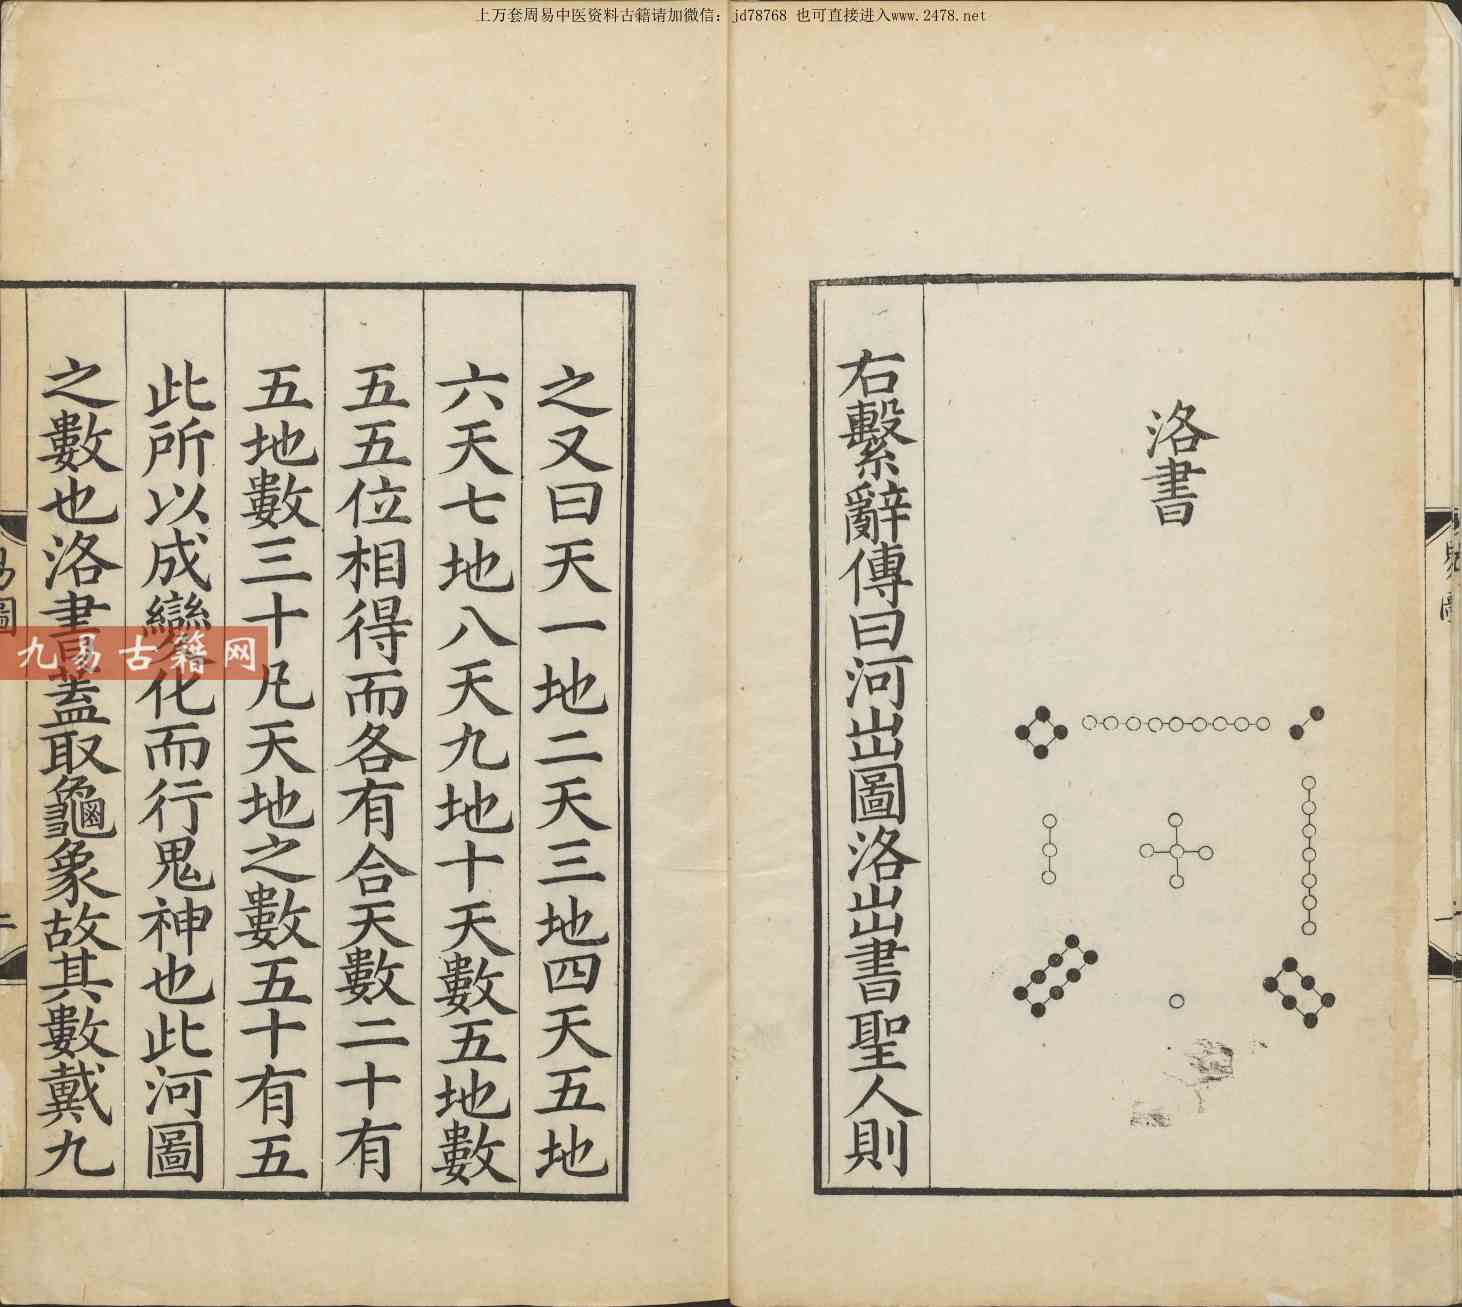 上万套周易中医资料古籍请加微信：jd78768 也可直接进入www.2478.net
洛書
右繫辭傳曰河出圖洛出書聖人則
之又曰天一地二天三地四天五地
六天七地八天九地十天數五地數
五五位相得而各有合天數二十有
五地數三十凡天地之數五十有五
此所以成變化而行鬼神也此河圖
之數也洛書蓋取龜象故其數戴九
易圖
二
九易古籍网